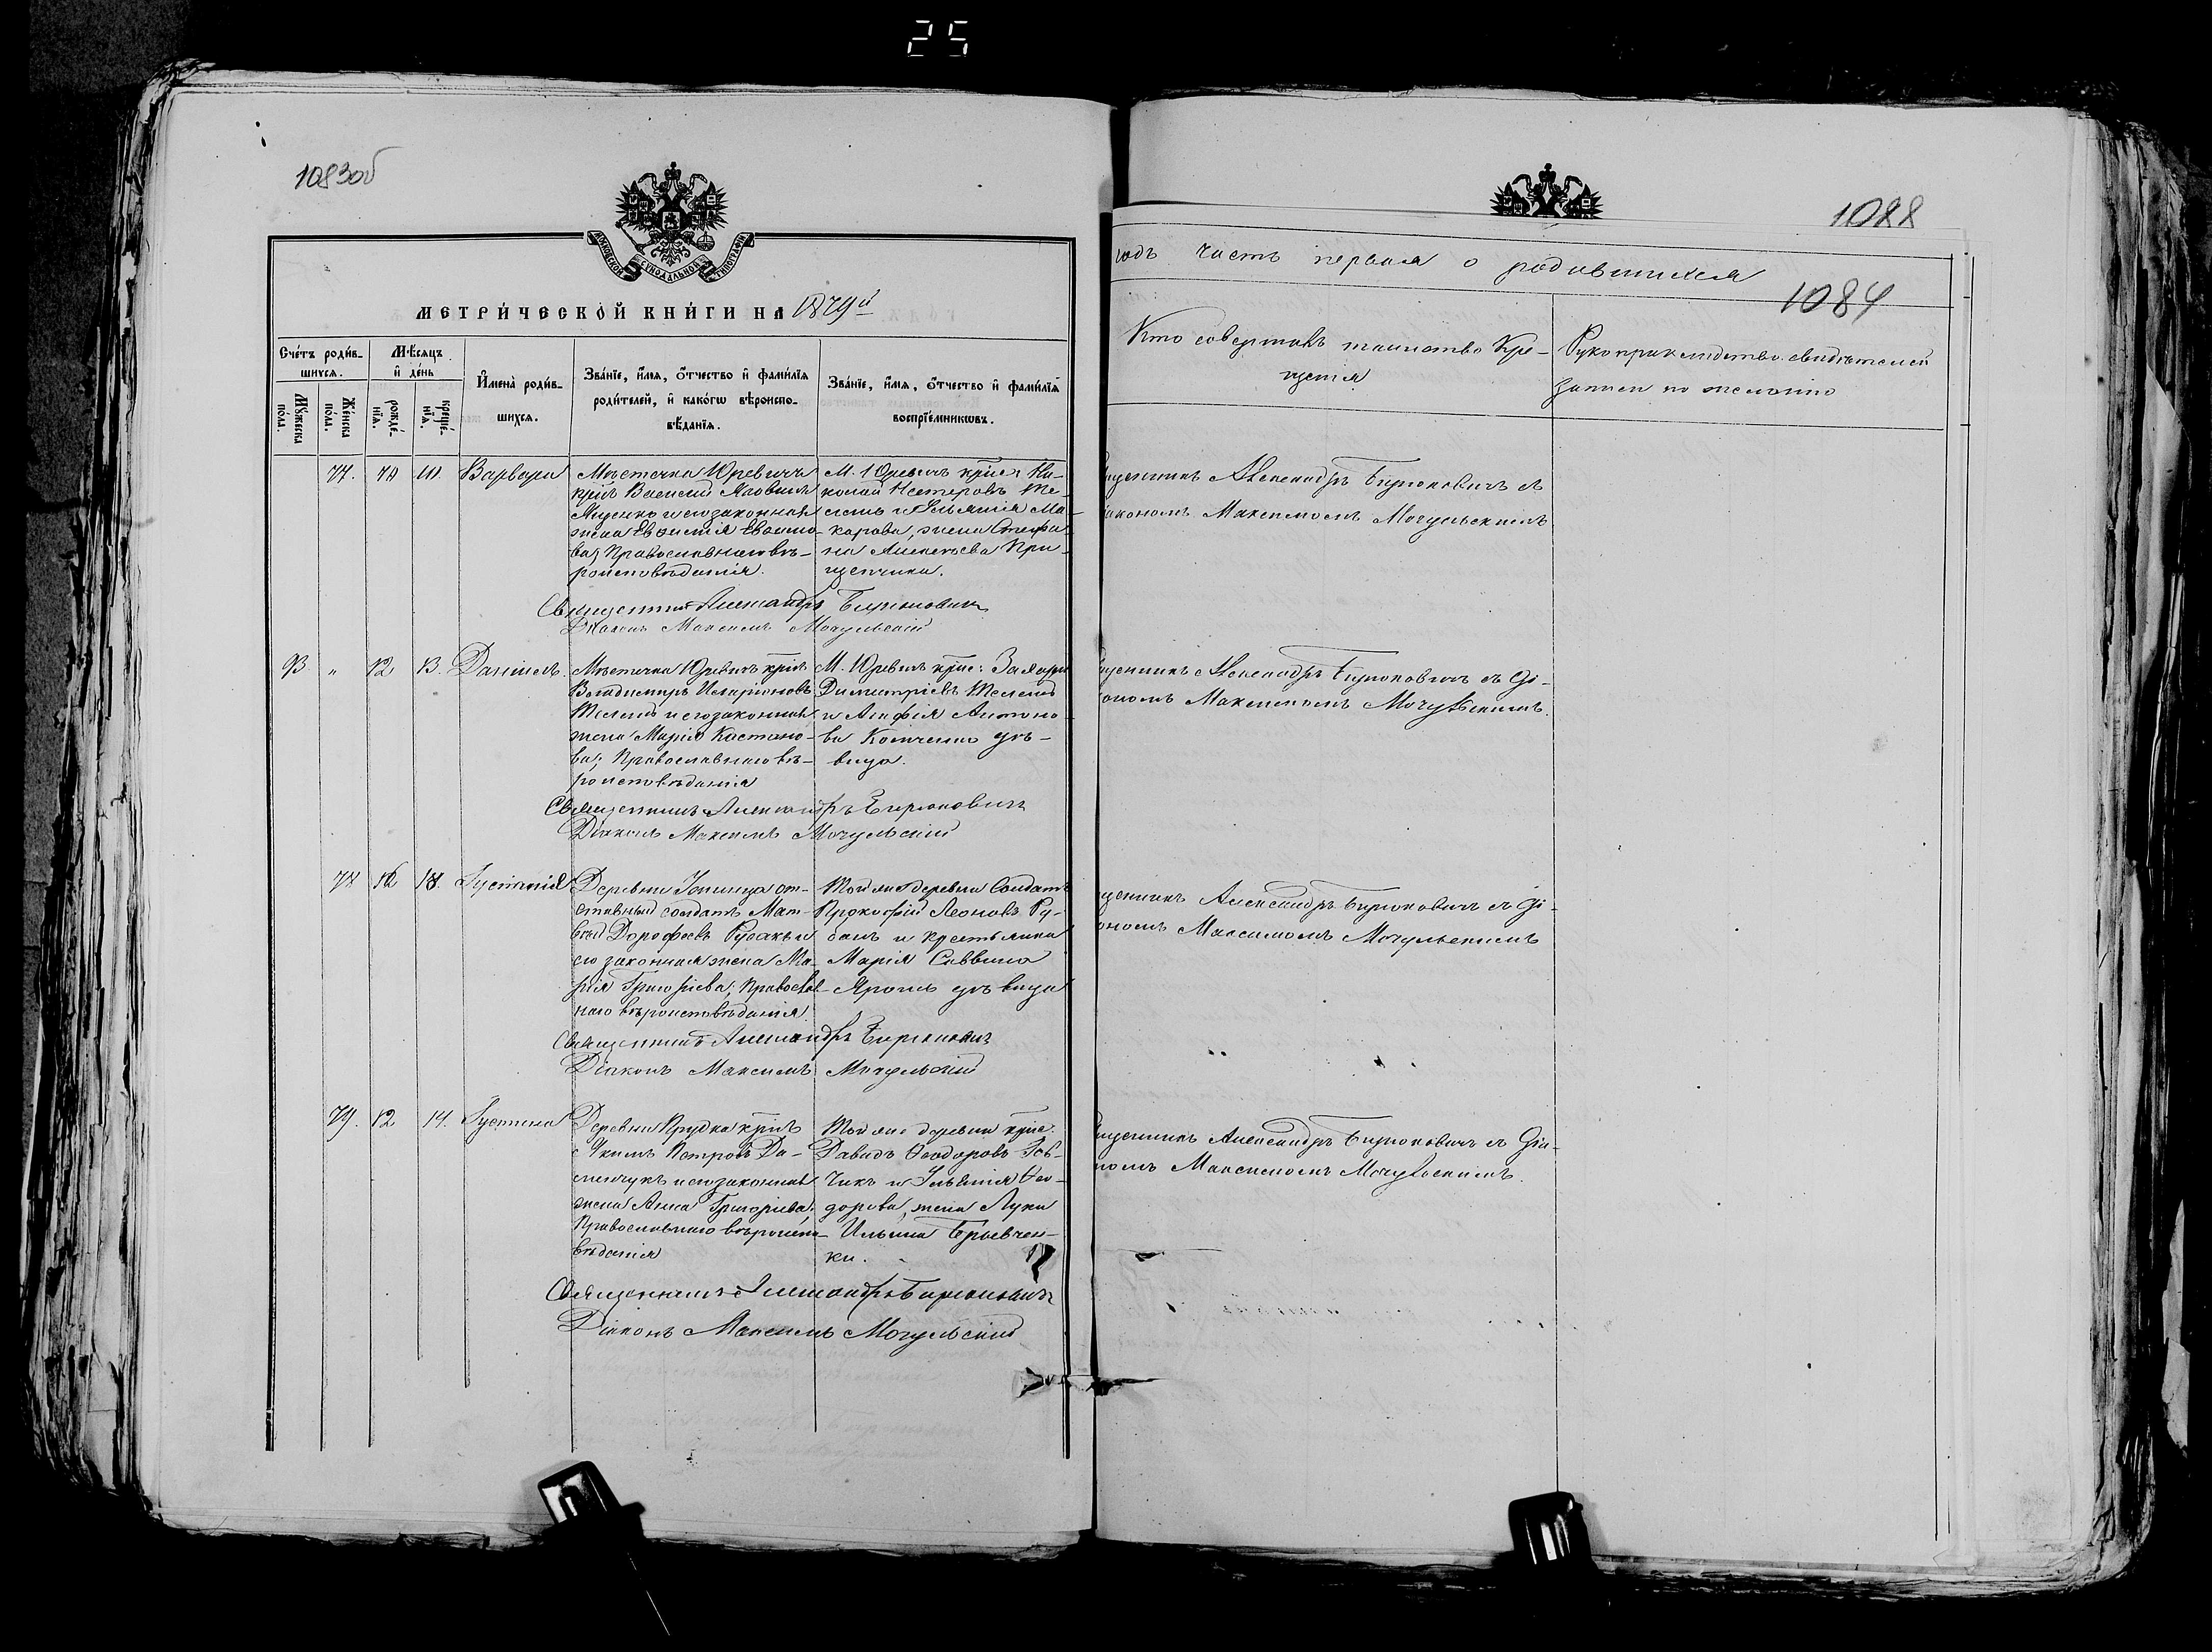 25
1083об
МОСКОВСКОЙ СѴНОДАЛЬНОЙ ТИПОГРАФІИ
МЕТРИ́ЧЕСКОЙ КНИ́ГИ НА 1879й
Сче́тъ роди́в-
шихся.
Мѣсяцъ
и де́нь
Му́жеска
по́ла.
Же́нска
по́ла.
рожде́-
нїя.
креще́-
нїя.
Имена̀ роди́в-
шихся.
Зва́нїе, и́мя, о́тчество и фами́лїя
роди́телей, и како́гѡ вѣроиспо-
вѣ́данїя.
Зва́нїе, и́мя, о́тчество и фами́лїя
воспрїе́мникѡвъ.
77. 10 10. Варвара
Мѣстечка Юревичъ
крнъ Василій
и его законная
жена Евфимія
ва, Православнаго вѣ-
роисповѣданія.
М. Юревичъ крнс: Ни-
колай Нестеровъ Же-
лезь и Ульянія Ма-
карова, жена Стефа-
на Алексѣева При-
щепчика.
Священникъ Александръ Бирюковичъ
Діаконъ Максимъ Мочульскій
93 " 12 13. Даніилъ.
Мѣстечка Юревичъ крнъ
Владимиръ Иларіоновъ
и его законная
жена Марія
ва; Православнаго вѣ-
роисповѣданія
М. Юревичъ крнс: Захарій
Димитріевъ
и Агафія Антоно-
ва дѣ-
вица.
Священникъ Александръ Бирюковичъ
Діаконъ Максимъ Мочульскій
78 12 13. Іустинія
Деревни от-
ставный солдатъ Мат-
вѣй Дорофеевъ Русакъ и
его законная жена Ма-
рія Григоріева; Православ-
наго вѣроисповѣданія
Той же деревни Солдатъ
Прокофій Леоновъ Ру-
и крестьянка
Марія Саввина
дѣвица
Священникъ Александръ Бирюковичъ
Діаконъ Максимъ Мочульскій
79. 12 14. Іустина
Деревни Прудка крнъ
Якимъ Петровъ Да-
и его законная
жена Анна Григоріева,
Православнаго вѣроиспо-
вѣданія
Той же деревни крнс.
Давидъ Ѳеодоровъ
чикъ и Ульянія Ѳео-
дорова, жена Луки
Ильина
ки.
Священникъ Александръ Бирюковичъ
Діаконъ Максимъ Мочульскій
1088
годъ часть первая о родившихся
1084
Кто совершалъ таинство Кре-
щенія
Рукоприкладство свидѣтелей
записи по желанію
щенникъ Александръ Бирюковичъ съ
іакономъ Максимомъ Мочульскимъ
щенникъ Александръ Бирюковичъ съ Ді-
ономъ Максимомъ Мочульскимъ.
щенникъ Александръ Бирюковичъ съ Ді-
ономъ Максимомъ Мочульскимъ
щенникъ Александръ Бирюковичъ съ Діа-
номъ Максимомъ Мочульскимъ.